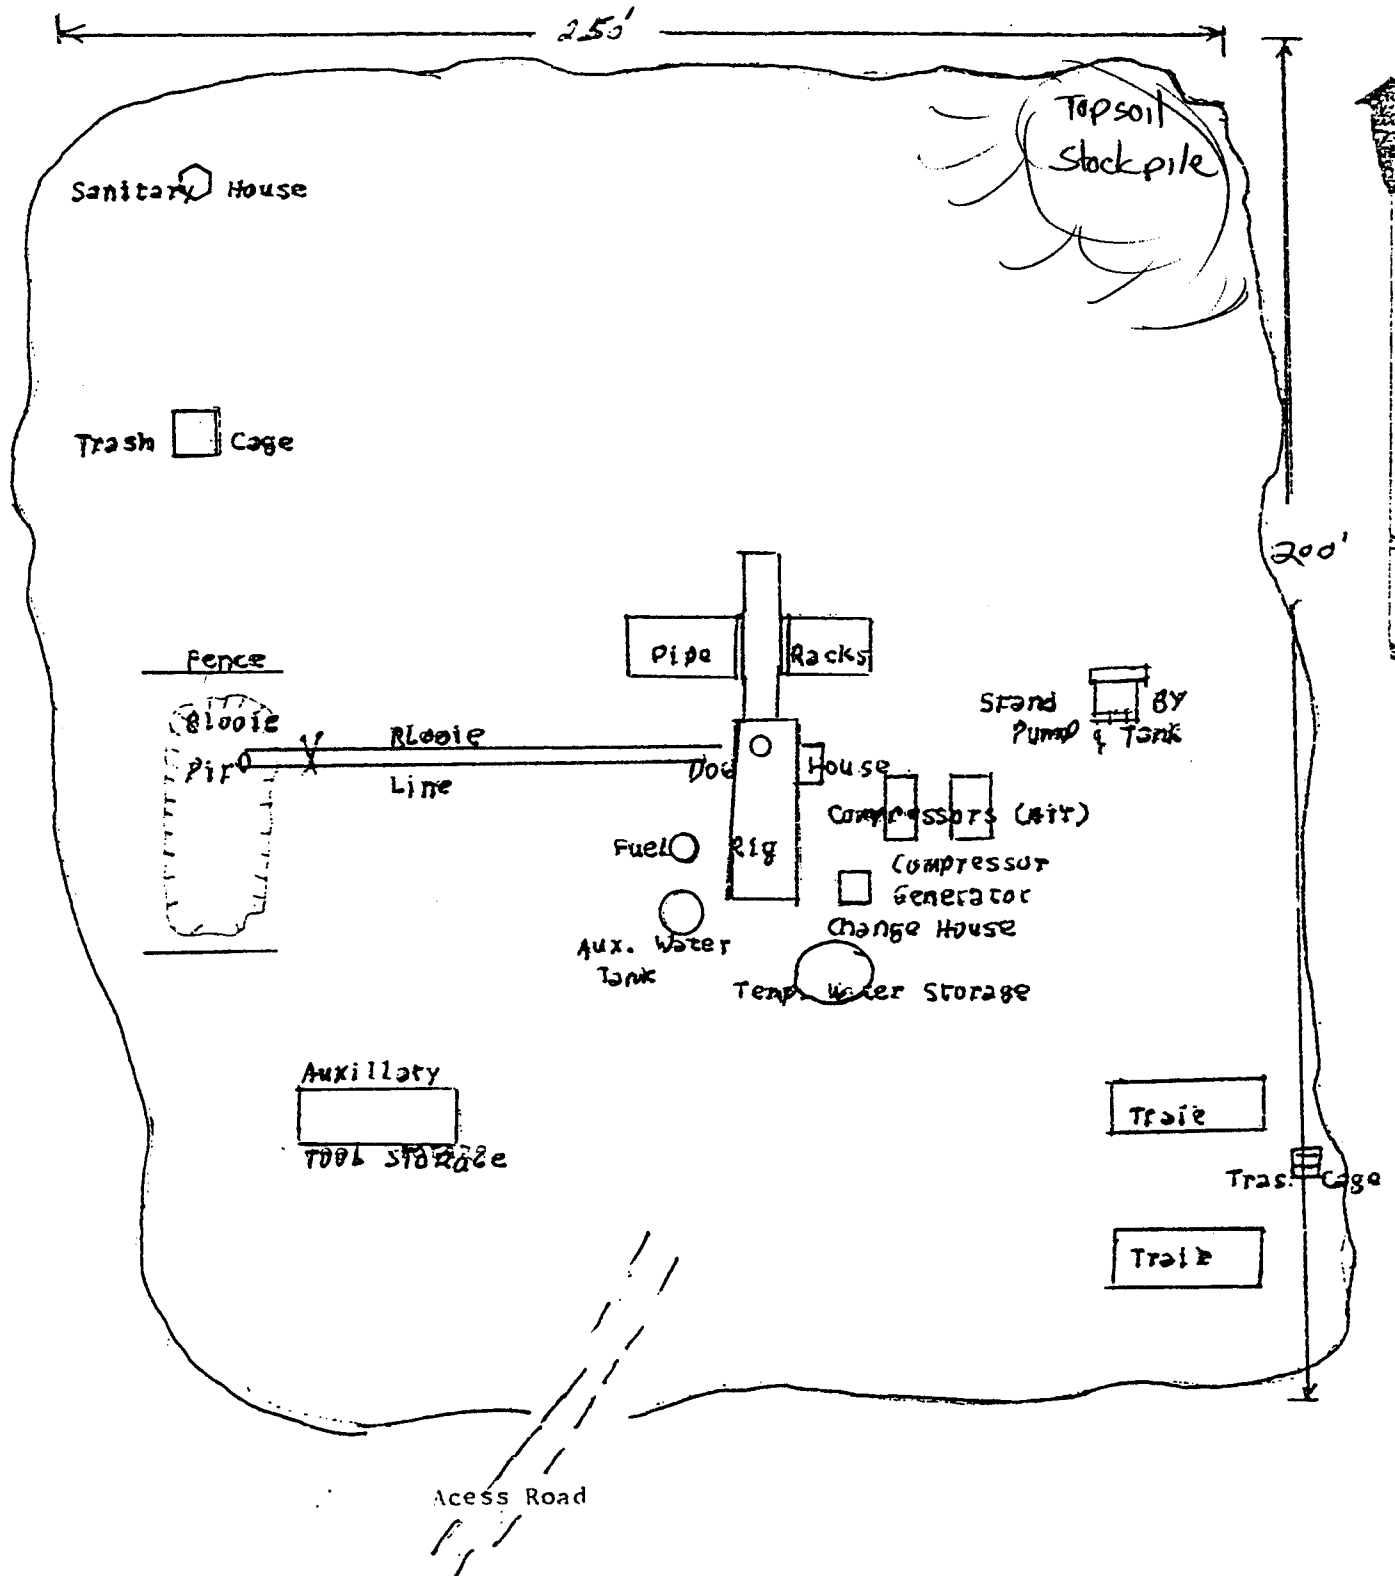 250'
Topsoil
Stockpile
Sanitary House
Trash Cage
200'
Fence
Pipe Racks
Stand BY
Pump & Tank
Blooie
Pit
Blooie
Line
Dog House
Compressors (Air)
Fuel
Rig
Compressor
Generator
Change House
Aux. Water
Tank
Temp. Water Storage
Auxillary
Tool Storage
Traile
Tras. Cage
Acess Road